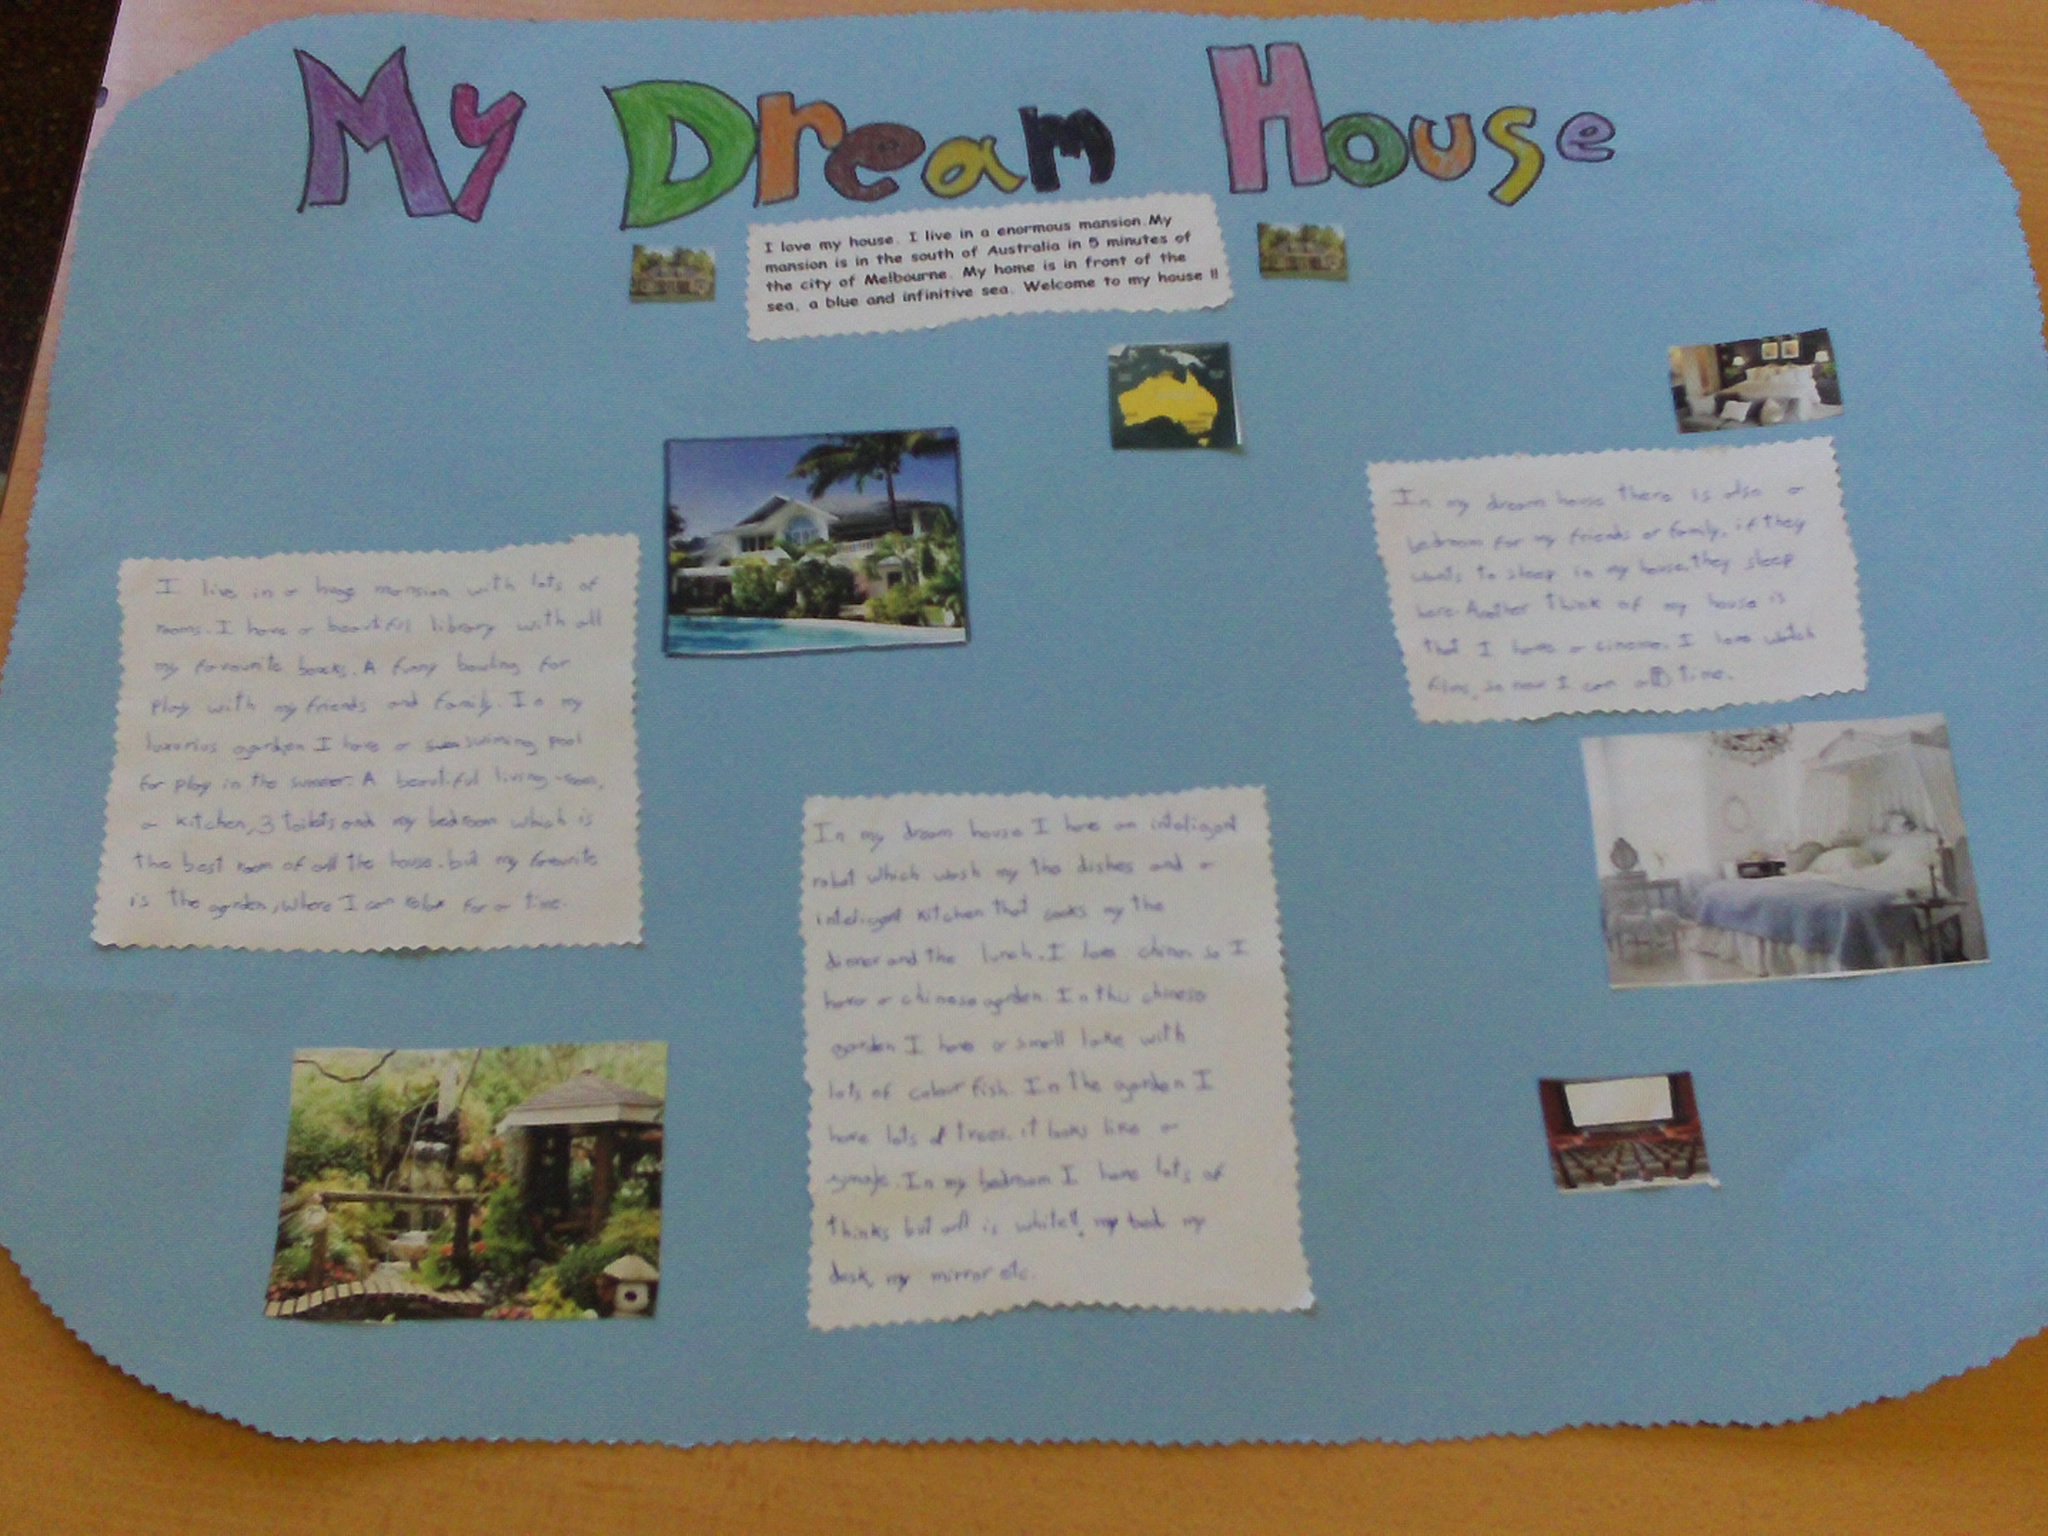 My Dream House
I love my house. I live in a enormous mansion.My
mansion is in the south of Australia in 5 minutes of
the city of Melbourne. My home is in front of the
sea, a blue and infinitive sea. Welcome to my house !!
I live in a huge mansion with lots of
rooms. I have a beautiful library with all
my favourite books. A funny bowling for
play with my friends and family. In my
luxurius garden I have a swimming pool
for play in the summer. A beautiful living-room,
a kitchen, 3 toilets and my bedroom which is
the best room of all the house. but my favourite
is the garden, where I can relax for a time.
In my dream house I have an inteligent
robot which wash my the dishes and a
inteligent kitchen that cooks my the
dinner and the lunch. I love china, so I
have a chinese garden. In this chinese
garden I have a small lake with
lots of colour fish. In the garden I
have lots of trees, it looks like a
In my bedroom I have lots of
thinks but all is white!!, my bed my
desk, my mirror etc.
In my dream house there is also a
bedroom for my friends or family, if they
wants to sleep in my house, they sleep
here. Another think of my house is
that I have a cinema. I love watch
films, so now I can all time.